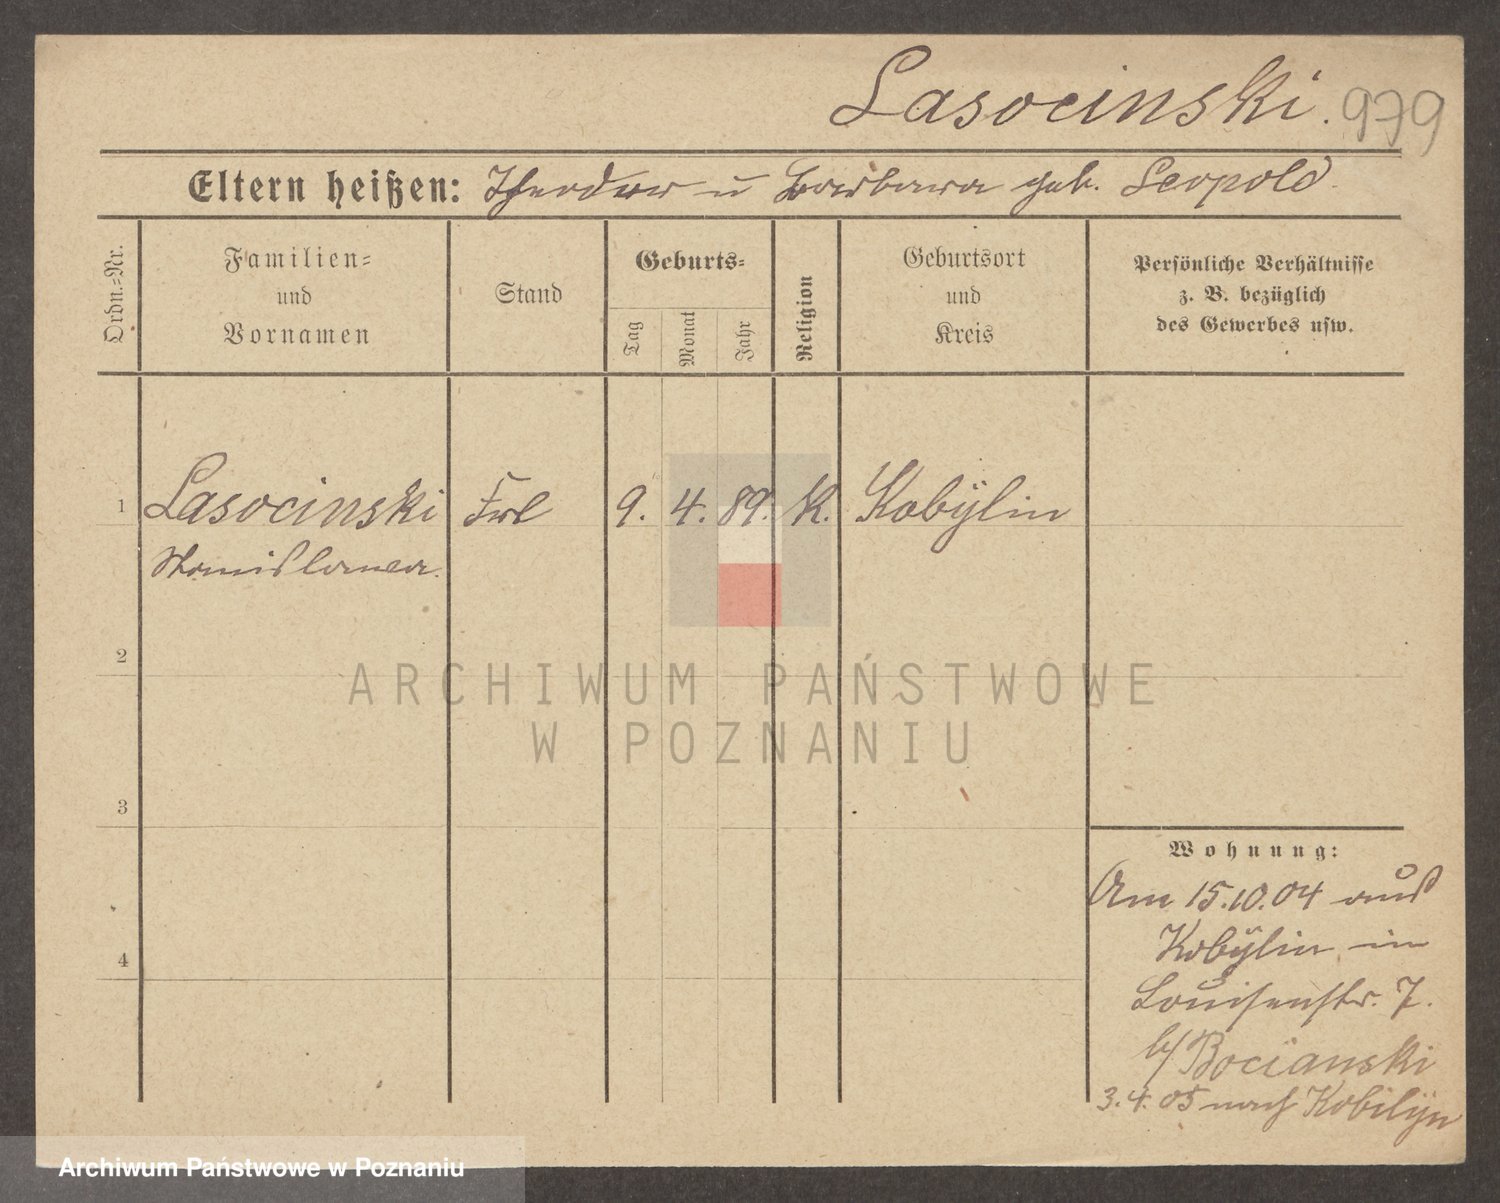 Lasocinski. 979
Eltern heißen: Theodor u Barbara geb. Leopold.
Ordn.-Nr.
Familien-
und
Vornamen
Stand
Geburts-
Tag
Monat
Jahr
Religion
Geburtsort
und
Kreis
Persönliche Verhältnisse
z. B. bezüglich
des Gewerbes usw.
1 Lasocinski Frl 9. 4. 89. K. Kobÿlin
Stanislawa.
2
3
4
Wohnung:
Am 15.10.04 aus
Kobÿlin in
Louisenstr. 7.
b/ Bocianski
3.4.05 nach Kobilÿn
ARCHIWUM PAŃSTWOWE
W POZNANIU
Archiwum Państwowe w Poznaniu